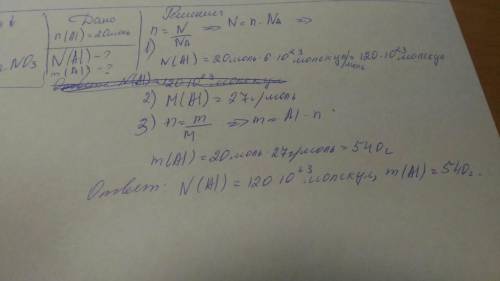 Дано
n(Al)=20моль
N(Al)-?
m(Al)=?
NO₃
Решение
1) n=N/Nₐ ⇒ N=n·Nₐ ⇒
N(Al)=20моль·6·10²³молекул/моль=120·10²³молекул
Ответ: N(Al)=120·10²³молекул
2) M(Al)=27г/моль
3) n=m/M ⇒ m=M·n
m(Al)=20моль·27г/моль=540г
Ответ: N(Al)=120·10²³молекул, m(Al)=540г.